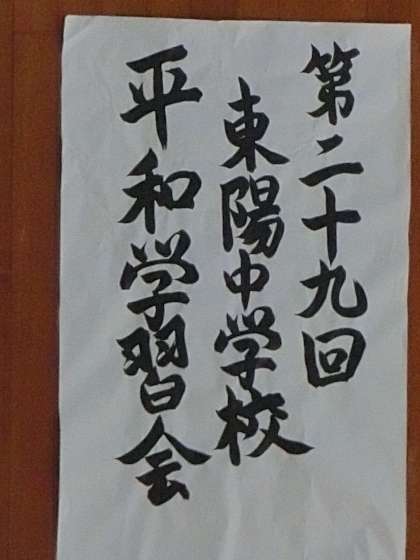 第二十九回
東陽中学校
平和学習会